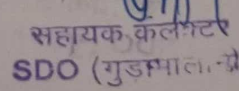 सहायक कलेक्टर
SDO (गुड़ामाला